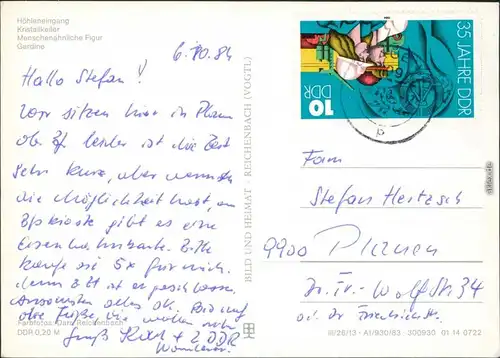 Höhleneingang
Kristallkeller
Menschenähnliche Figur
Gardine
6.10.84
Hallo Stefan!
Wir sitzen hier in
ob. Bf. leider ist die Zeit
sehr kurz, aber wenn du
die Möglichkeit hast, am
gibt es eine
Eisenbahnkarte. Bitte
kaufe sie 5x für mich.
denn z. Zt. ist er geschlossen.
Ansonsten alles ok. Bis auf
die Füße, die wollen nicht
Gruß
Farbfotos: Reichenbach
DDR 0,20 M
BILD UND HEIMAT REICHENBACH (VOGTL)
35 JAHRE DDR
10
DDR
Fam
Stefan Hertzsch
9900 Plauen
Dr.-Fr.-Wolf-Str. 34
III/26/13 · A1/930/83 · 300930 01 14 0722